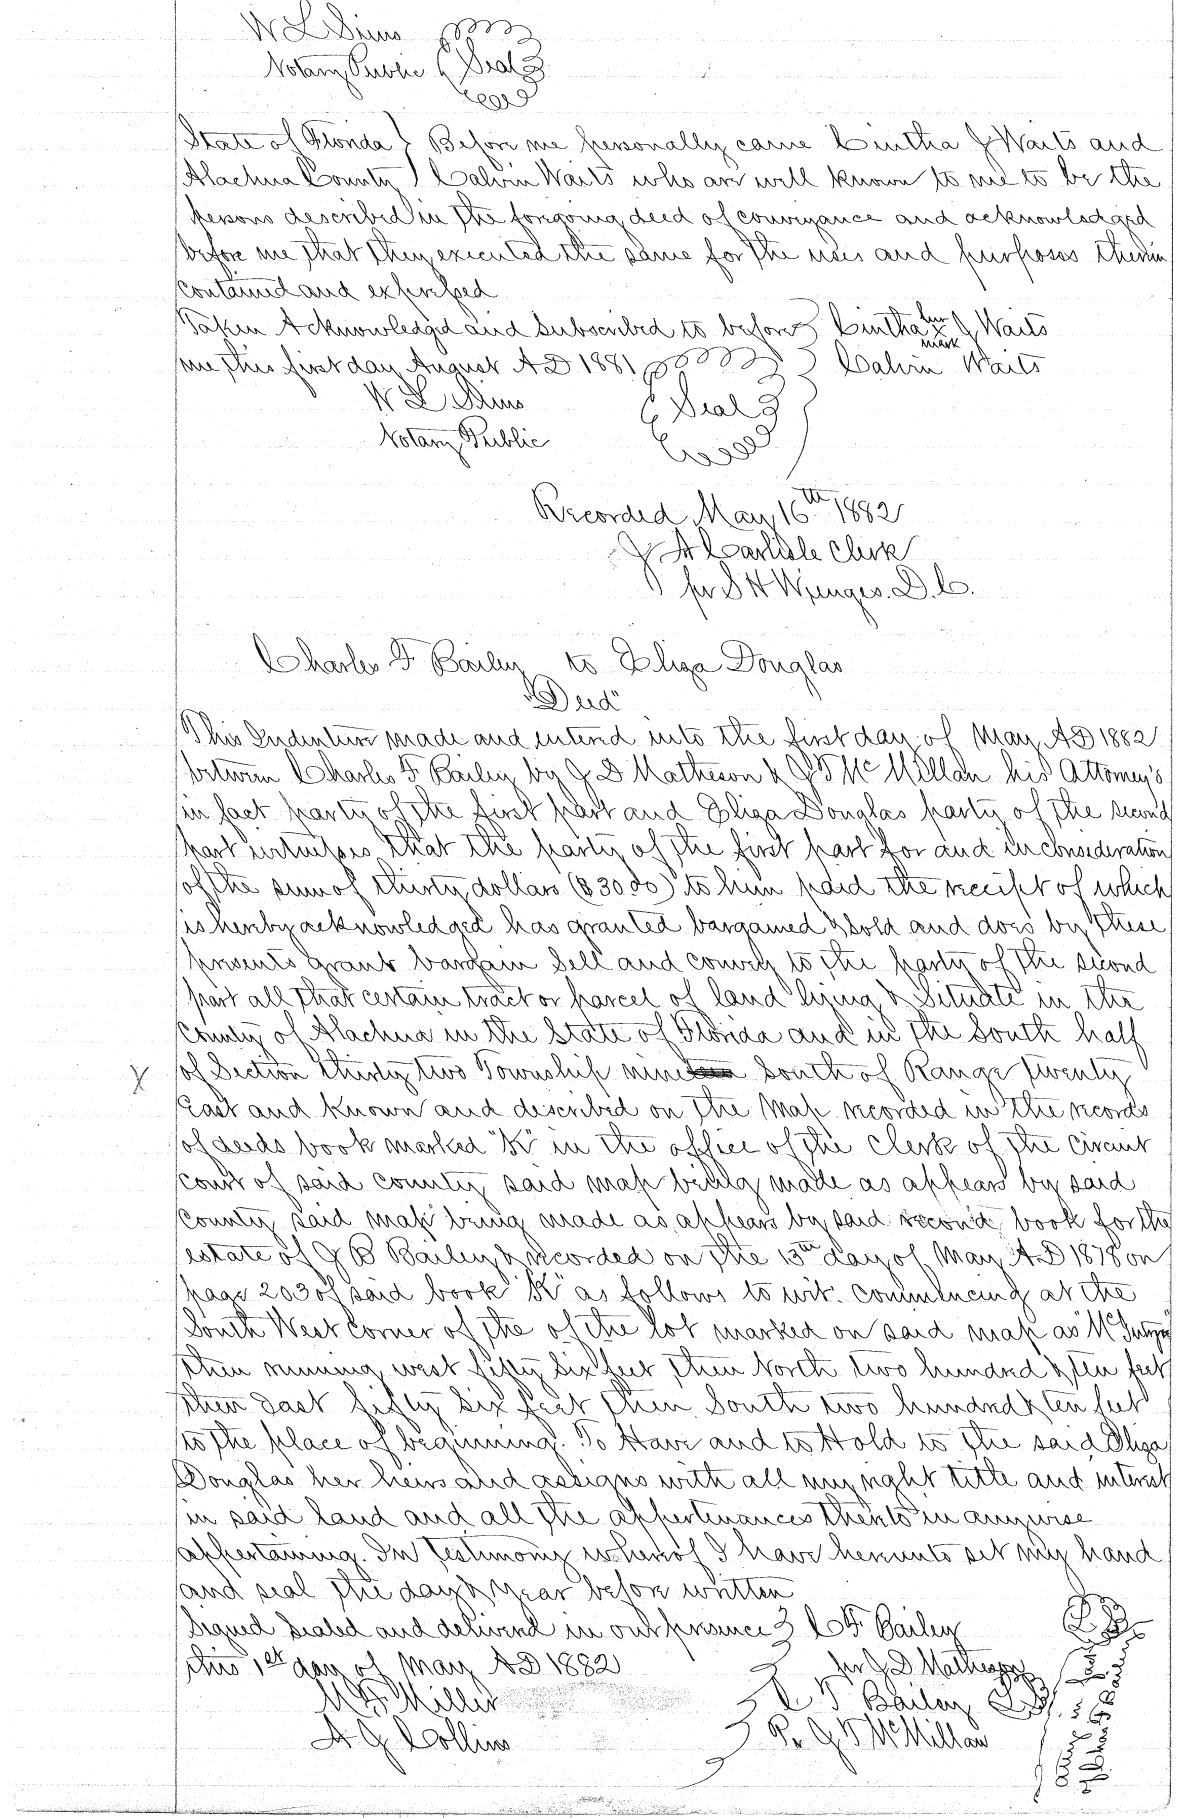 W L Sims
Notary Public (Seal)
State of Florida } Before me personally came Cintha J Waits and
Alachua County } Calvin Waits who are well known to me to be the
persons described in the foregoing deed of conveyance and acknowledged
before me that they executed the same for the uses and purposes therein
contained and expressed
Taken Acknowledged and Subscribed to before } Cintha her x mark J Waits
me this first day August A D 1881 } Calvin Waits
W L Sims (Seal)
Notary Public
Recorded May 16th 1882
J A Carlisle Clerk
pr S H Wienges. D. C.
Charles F Bailey to Eliza Douglas
"Deed"
This Indenture made and entered into the first day of May A D 1882
between Charles F Bailey by J D Matheson & J T McMillan his Attorney's
in fact party of the first part and Eliza Douglas party of the second
part witnesses that the party of the first part for and in consideration
of the sum of thirty dollars ($30 00) to him paid the receipt of which
is hereby acknowledged has granted bargained & sold and does by these
presents grant bargain Sell and convey to the party of the second
part all that certain tract or parcel of land lying & Situate in the
County of Alachua in the State of Florida and in the South half
X of Section thirty two Township nine South of Range twenty
East and known and described on the Map recorded in the records
of deeds book marked "K" in the office of the Clerk of the Circuit
Court of said County said map being made as appears by said
County said map being made as appears by said record book for the
estate of J B Bailey & recorded on the 13th day of May A D 1878 on
page 203 of said book "K" as follows to wit. Commencing at the
South West corner of the of the lot marked on said map as "McIntyre"
then running west fifty six feet then North two hundred & ten feet
then East fifty six feet then South two hundred & ten feet
to the place of beginning. To Have and to Hold to the said Eliza
Douglas her heirs and assigns with all my right title and interest
in said land and all the appertenances thereto in anywise
appertaining. In testimony whereof I have hereunto set my hand
and seal the day & year before written
Signed Sealed and delivered in our presence } C F Bailey
this 1st day of May A D 1882 pr J D Matheson
M F Miller C F Bailey
A J Collins Pr J T McMillan